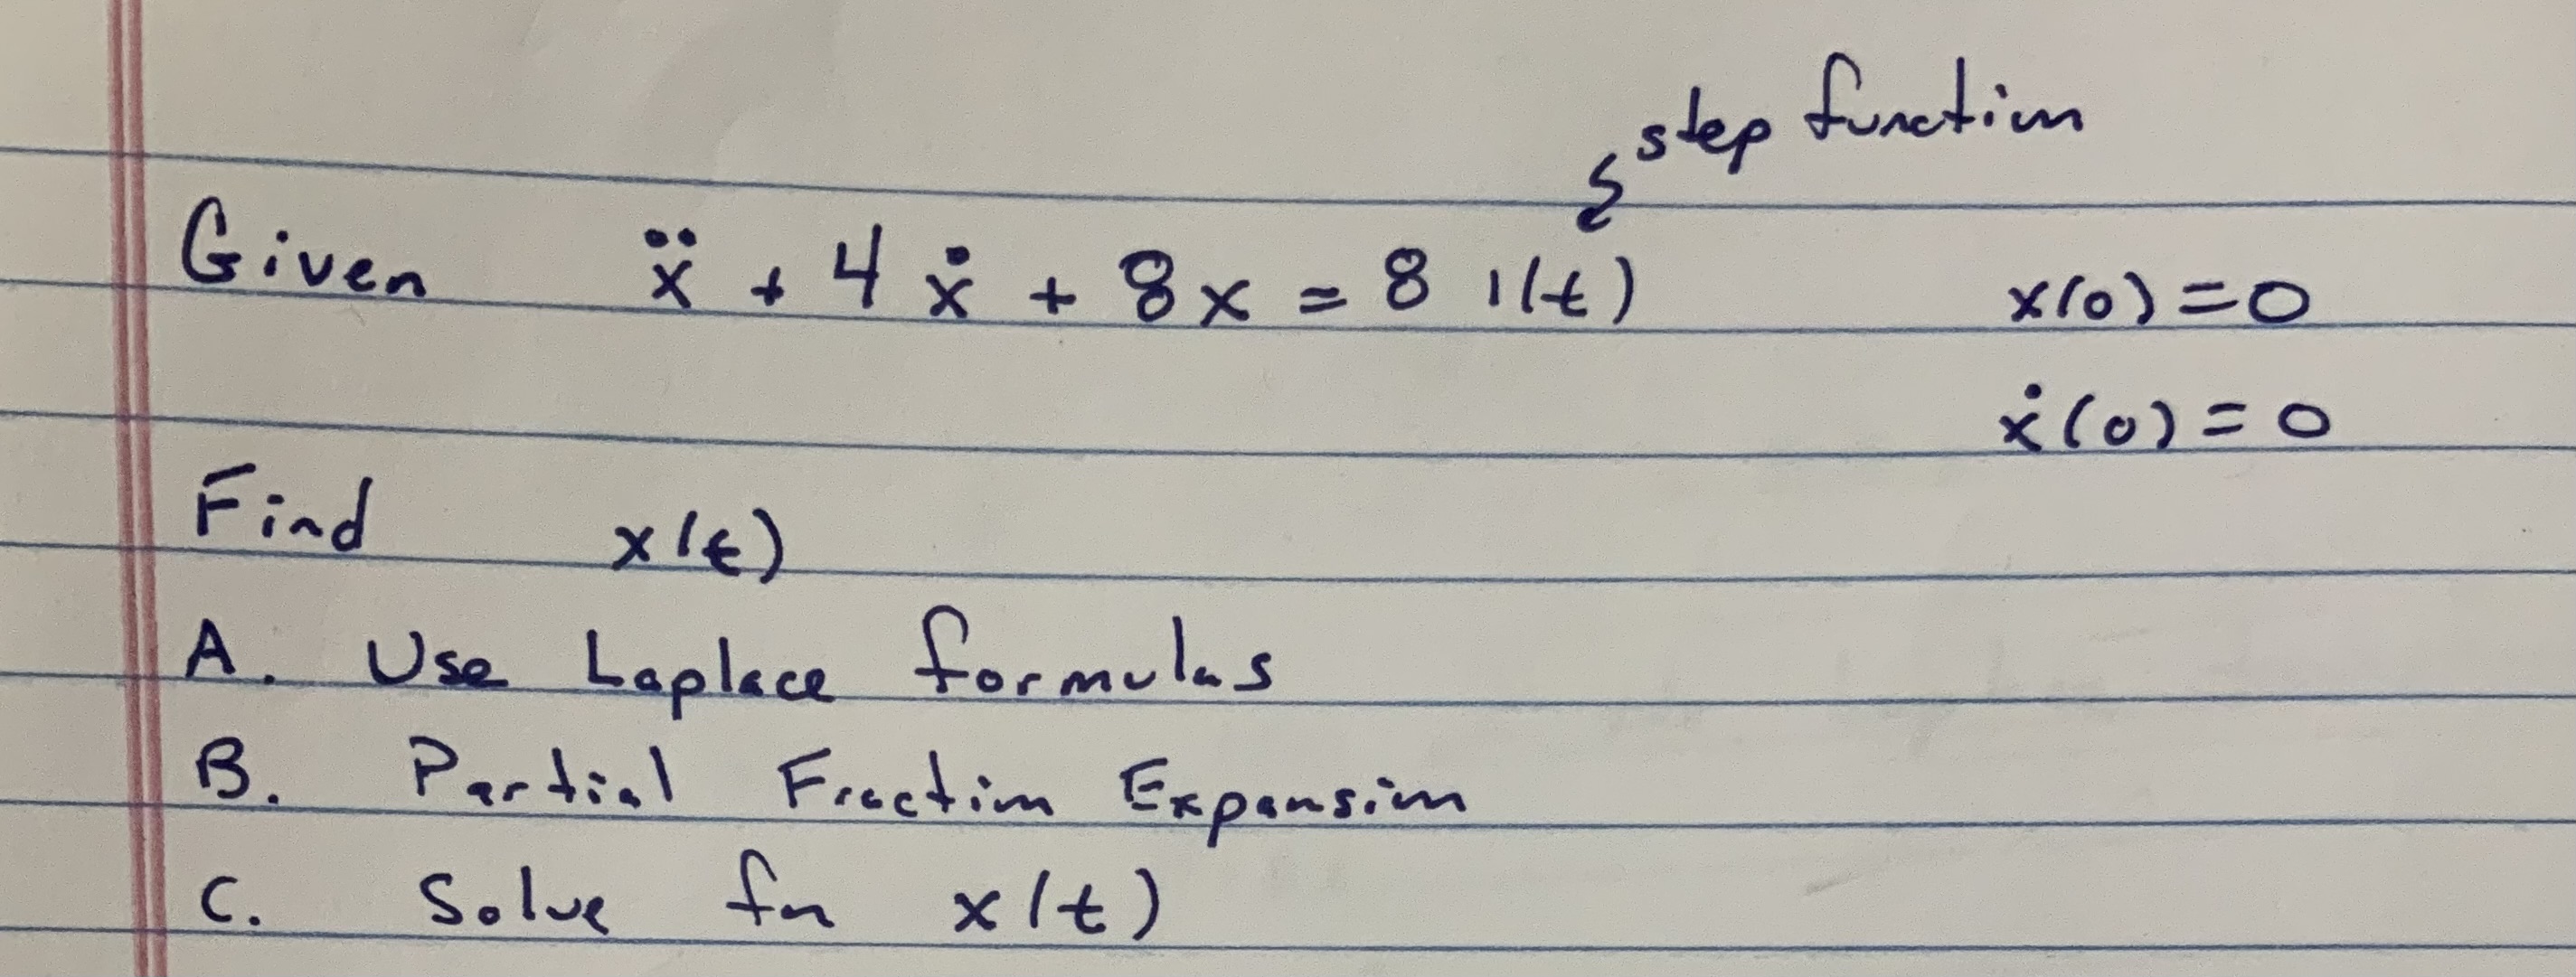 step function
Given ẍ + 4 ẋ + 8x = 8 1(t) x(0) = 0
ẋ(0) = 0
Find x(t)
A. Use Laplace formulas
B. Partial Fraction Expansion
C. Solve for x(t)